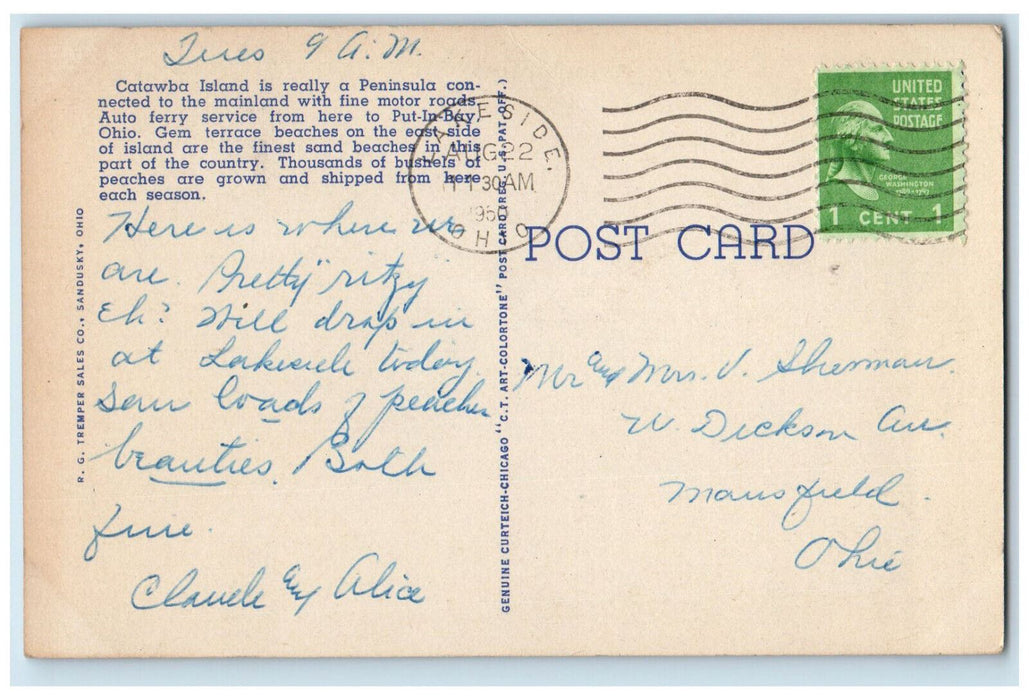 Tues 9 A.M.
Catawba Island is really a Peninsula con-
nected to the mainland with fine motor roads.
Auto ferry service from here to Put-In-Bay,
Ohio. Gem terrace beaches on the east side
of island are the finest sand beaches in this
part of the country. Thousands of bushels of
peaches are grown and shipped from here
each season.
Here is where we
are. Pretty "ritzy
Eh? Will drop in
at Lakeside today.
Saw loads of peaches
beauties. Both
fine.
Claude and Alice
R. G. TREMPER SALES CO., SANDUSKY, OHIO
GENUINE CURTEICH-CHICAGO "C.T. ART-COLORTONE" POST CARD (REG. U.S. PAT. OFF.)
LAKESIDE,
AUG 22
11 30 AM
1950
OHIO
UNITED
STATES
POSTAGE
GEORGE
WASHINGTON
1789-1797
1 CENT 1
POST CARD
Mr and Mrs. V. Sherman
W. Dickson Av.
Mansfield.
Ohio